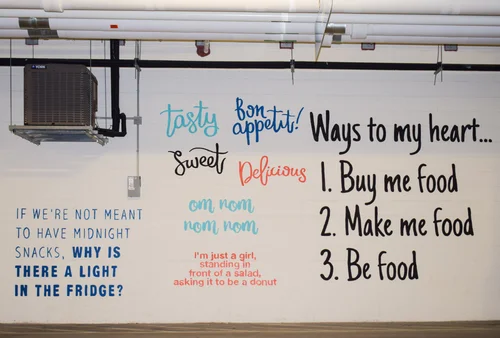 tasty
bon
appetit!
Sweet
Delicious
om nom
nom nom
I'm just a girl,
standing in
front of a salad,
asking it to be a donut
IF WE'RE NOT MEANT
TO HAVE MIDNIGHT
SNACKS, WHY IS
THERE A LIGHT
IN THE FRIDGE?
Ways to my heart...
1. Buy me food
2. Make me food
3. Be food